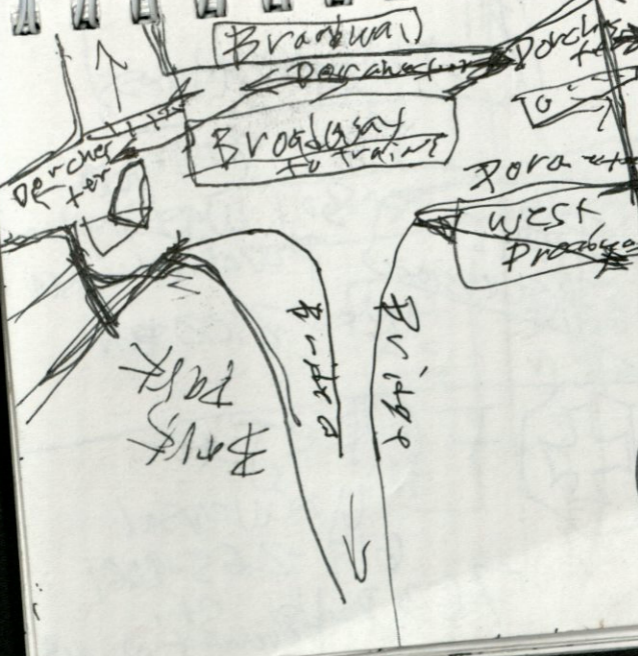 Broadway
Dorchester
Dorches
ter
Broadway
to trains
Dorches
ter
TO
Dorchester
West
Broadway
Bridge
Bridge
Park
Park